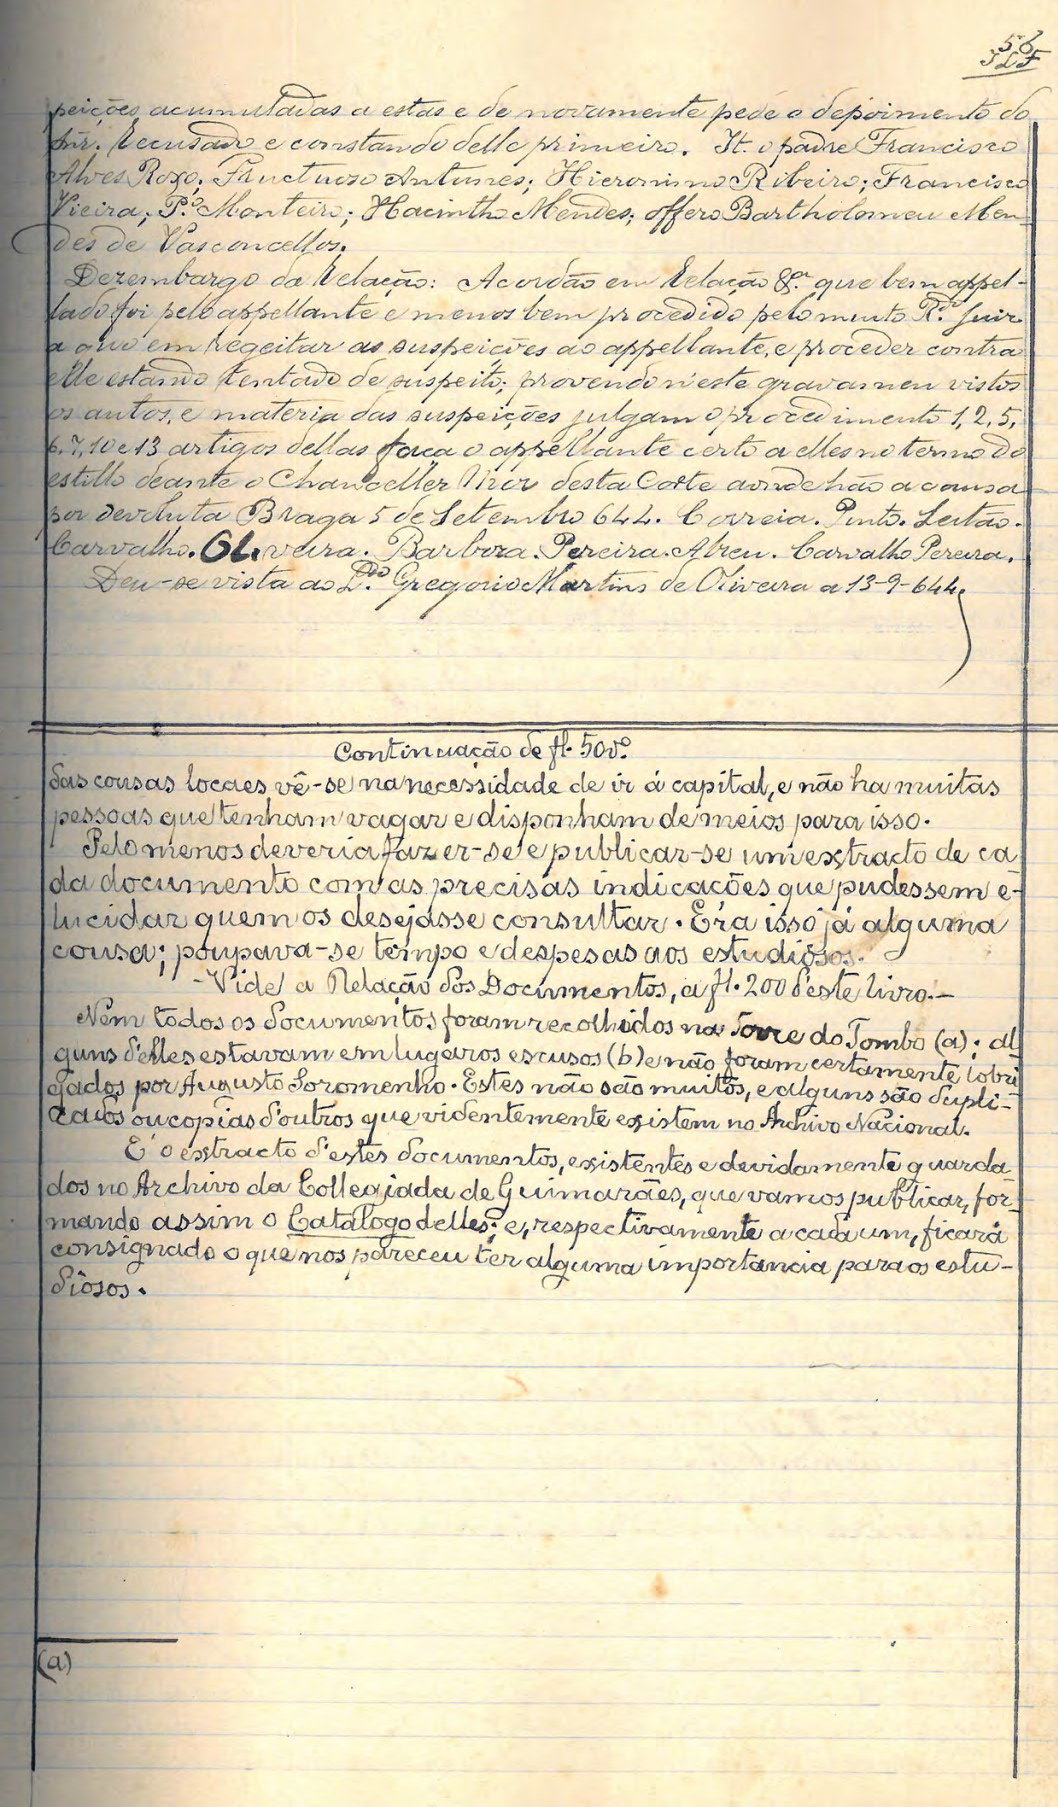 56
JLF
peições acumuladas a estas e de novamente pede o depoimento do
Snr. Recusado e constando delle primeiro. It. o padre Francisco
Alves Roxo; Fructuozo Antunes; Hieronimo Ribeiro; Francisco
Vieira; P.º Monteiro; Hacintho Mendes; offero Bartholomeu Men-
des de Vasconcellos.
Dezembargo da Relação: Acordão em Relação &.ª que bem appel-
lado foi pelo appellante e menos bem procedido pelo muito R.do Juiz
a quo em regeitar as suspeições ao appellante, e proceder contra
elle estando tentado de suspeito; provendo n'este gravamen vistos
os autos, e materia das suspeições julgam o procedimento 1, 2, 5,
6, 7, 10 e 13 artigos dellas faça o appellante certo a elles no termo do
estillo deante o Chanceller Mor desta Corte aonde hão a causa
por devoluta Braga 5 de Setembro 644. Correia. Pinto. Leitão.
Carvalho. Oliveira. Barboza. Pereira. Abreu. Carvalho Pereira.
Deu-se vista ao L.do Gregorio Martins de Oliveira a 13-9-644.
Continuação de fl. 50vº.
das cousas locaes vê-se na necessidade de ir á capital, e não ha muitas
pessoas que tenham vagar e disponham de meios para isso.
Pelo menos deveria fazer-se e publicar-se um extracto de ca
da documento com as precisas indicações que pudessem e-
lucidar quem os desejasse consultar. Era isso já alguma
cousa; poupava-se tempo e despesas aos estudiosos.
-Vide a Relação dos Documentos, a fl. 200 d'este livro.-
Nem todos os documentos foram recolhidos na Torre do Tombo (a); al-
guns d'elles estavam em lugares escusos (b) e não foram certamente lobri
gados por Augusto Soromenho. Estes não são muitos, e alguns são dupli-
cados ou copias d'outros que videntemente existem no Archivo Nacional.
É o extracto d'estes documentos, existentes e devidamente guarda-
dos no Archivo da Collegiada de Guimarães, que vamos publicar, for-
mando assim o Catálogo delles; e, respectivamente a cada um, ficará
consignado o que nos pareceu ter alguma importancia para os estu-
diosos.
(a)